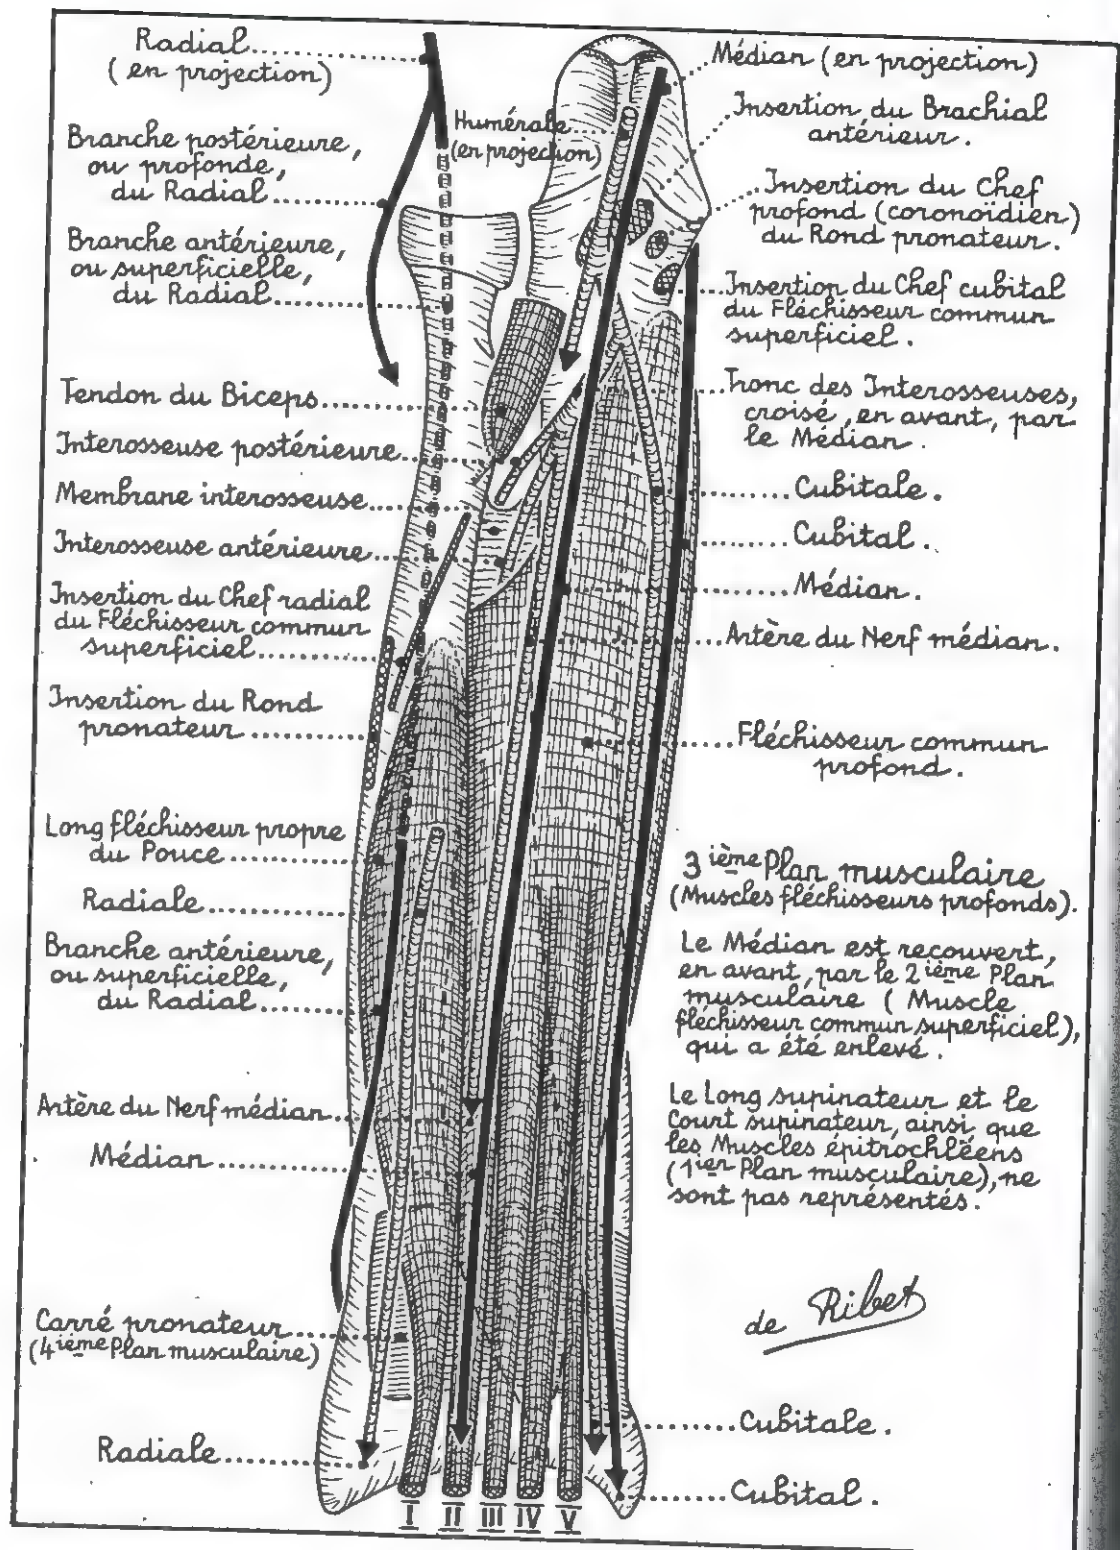 Radial
(en projection)
Branche postérieure,
ou profonde,
du Radial
Branche antérieure,
ou superficielle,
du Radial
Tendon du Biceps
Interosseuse postérieure
Membrane interosseuse
Interosseuse antérieure
Insertion du Chef radial
du Fléchisseur commun
superficiel
Insertion du Rond
pronateur
Long fléchisseur propre
du Pouce
Radiale
Branche antérieure,
ou superficielle,
du Radial
Artère du Nerf médian
Médian
Carré pronateur
(4ième Plan musculaire)
Radiale
Humérale
(en projection)
Médian (en projection)
Insertion du Brachial
antérieur.
Insertion du Chef
profond (coronoïdien)
du Rond pronateur.
Insertion du Chef cubital
du Fléchisseur commun
superficiel.
Tronc des Interosseuses,
croisé, en avant, par
le Médian.
Cubitale.
Cubital.
Médian.
Artère du Nerf médian.
Fléchisseur commun
profond.
3ième Plan musculaire
(Muscles fléchisseurs profonds).
Le Médian est recouvert,
en avant, par le 2ième Plan
musculaire (Muscle
fléchisseur commun superficiel),
qui a été enlevé.
Le Long supinateur et le
Court supinateur, ainsi que
les Muscles épitrochléens
(1ier Plan musculaire), ne
sont pas représentés.
de Ribet
Cubitale.
Cubital.
I II III IV V